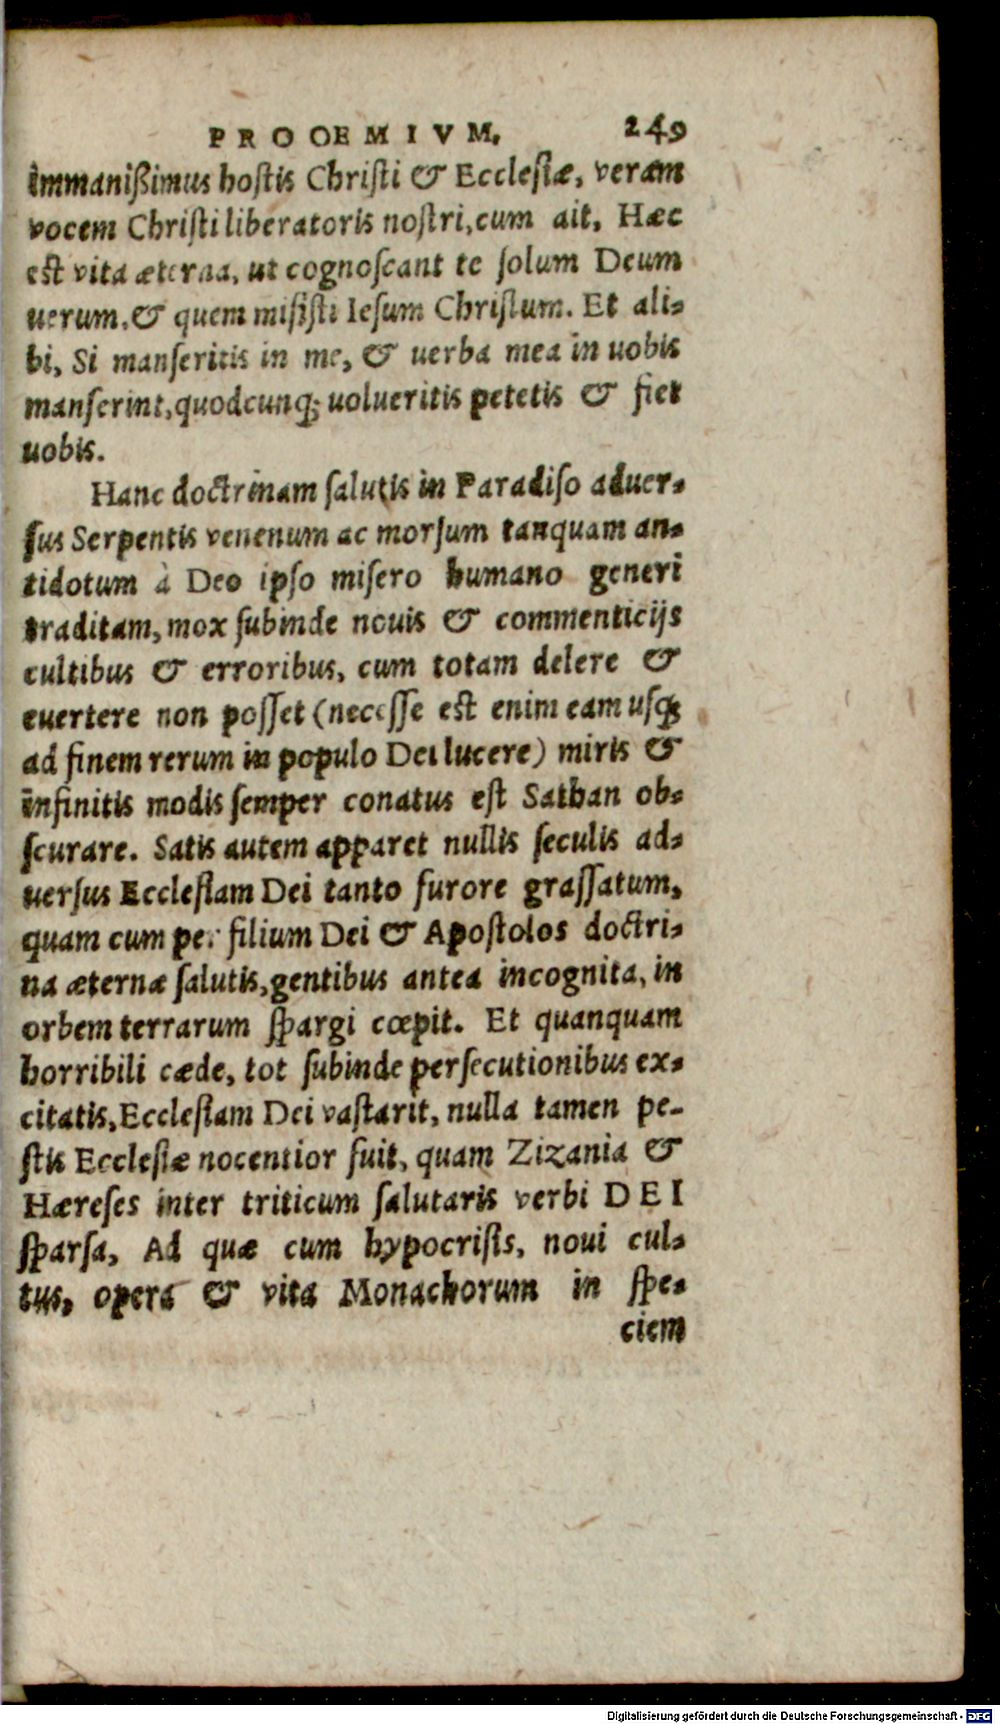 PROOEMIVM. 249
immanißimus hostis Christi & Ecclesiæ, veram
vocem Christi liberatoris nostri, cum ait, Hæc
est vita æterna, ut cognoscant te solum Deum
uerum, & quem misisti Iesum Christum. Et ali-
bi, Si manseritis in me, & uerba mea in uobis
manserint, quodcunq; uolueritis petetis & fiet
uobis.
Hanc doctrinam salutis in Paradiso aduer-
sus Serpentis venenum ac morsum tanquam an-
tidotum à Deo ipso misero humano generi
traditam, mox subinde nouis & commenticijs
cultibus & erroribus, cum totam delere &
euertere non posset (necesse est enim eam usq;
ad finem rerum in populo Dei lucere) miris &
infinitis modis semper conatus est Sathan ob-
scurare. Satis autem apparet nullis seculis ad-
uersus Ecclesiam Dei tanto furore grassatum,
quam cum per filium Dei & Apostolos doctri-
na æternæ salutis, gentibus antea incognita, in
orbem terrarum spargi cœpit. Et quanquam
horribili cæde, tot subinde persecutionibus ex-
citatis, Ecclesiam Dei vastarit, nulla tamen pe-
stis Ecclesiæ nocentior fuit, quam Zizania &
Hæreses inter triticum salutaris verbi DEI
sparsa, Ad quæ cum hypocrisis, noui cul-
tus, opera & vita Monachorum in spe-
ciem
Digitalisierung gefördert durch die Deutsche Forschungsgemeinschaft - DFG